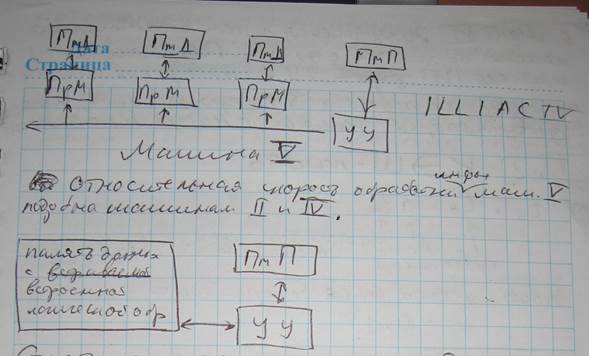 ПмД ПмД ПмД ПмП
Дата
Страница
ПрМ ПрМ ПрМ
УУ
ILLIAC IV
Машина V
инфор
Относительная скорость обработки маш. V
подобна машинам II и IV.
память данных
с
встроенной
логической обр
ПмП
УУ